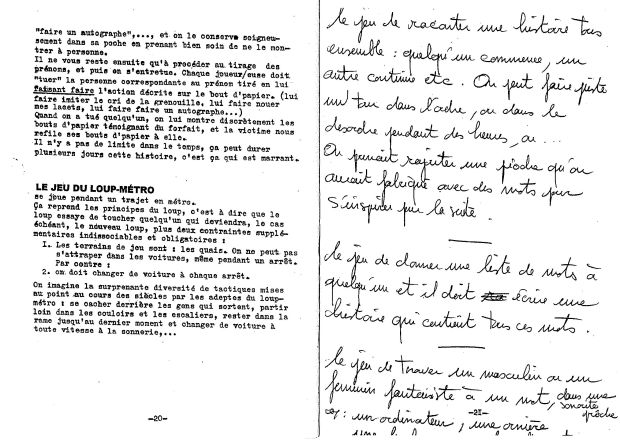 "faire un autographe",..., et on le conserve soigneu-
sement dans sa poche en prenant bien soin de ne le mon-
trer à personne.
Il ne vous reste ensuite qu'à procéder au tirage des
prénoms, et puis on s'entretue. Chaque joueur/euse doit
"tuer" la personne correspondante au prénom tiré en lui
faisant faire l'action décrite sur le bout d'papier. (lui
faire imiter le cri de la grenouille, lui faire nouer
mes lacets, lui faire faire un autographe...)
Quand on a tué quelqu'un, on lui montre discrètement les
bouts d'papier témoignant du forfait, et la victime nous
refile ses bouts d'papier à elle.
Il n'y a pas de limite dans le temps, ça peut durer
plusieurs jours cette histoire, c'est ça qui est marrant.
LE JEU DU LOUP-MÉTRO
se joue pendant un trajet en métro.
Ça reprend les principes du loup, c'est à dire que le
loup essaye de toucher quelqu'un qui deviendra, le cas
échéant, le nouveau loup, plus deux contraintes supplé-
mentaires indissociables et obligatoires :
1. Les terrains de jeu sont : les quais. On ne peut pas
s'attraper dans les voitures, même pendant un arrêt.
Par contre :
2. on doit changer de voiture à chaque arrêt.
On imagine la surprenante diversité de tactiques mises
au point au cours des siècles par les adeptes du loup-
métro : se cacher derrière les gens qui sortent, partir
loin dans les couloirs et les escaliers, rester dans la
rame jusqu'au dernier moment et changer de voiture à
toute vitesse à la sonnerie,...
-20-
Le jeu de raconter une histoire tous
ensemble : quelqu'un commence, un
autre continue etc. On peut faire juste
un tau dans l'ordre, ou dans le
desordre pendant des heures, ou...
On pourrait rajouter une pioche qu'on
aurait fabriqué avec des mots pour
s'inspirer pour la suite.
Le jeu de donner une liste de mots à
quelqu'un et il doit écrire une
histoire qui contient tous ces mots.
Le jeu de trouver un masculin ou un
feminin fantaisiste à un mot, dans une
sonorité
proche
ex: un ordinateur, une ornière
-21-